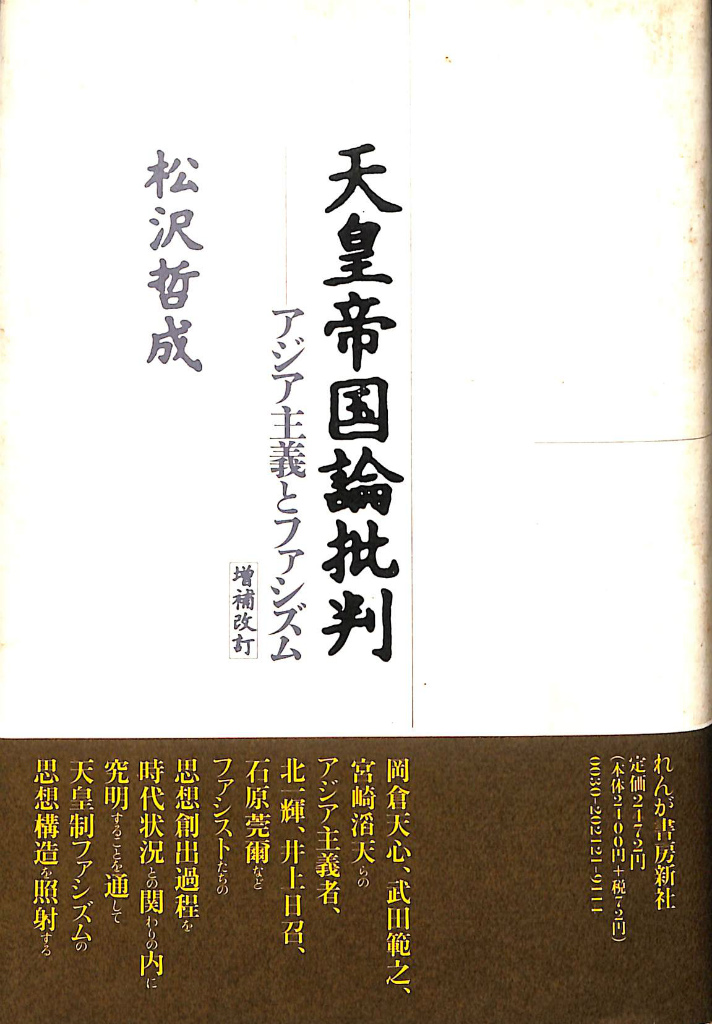 天皇帝国論批判
アジア主義とファシズム
増補改訂
松沢哲成
れんが書房新社
定価2172円
(本体2100円+税72円)
0030-202121-9111
岡倉天心、武田範之、
宮崎滔天らの
アジア主義者、
北一輝、井上日召、
石原莞爾など
ファシストたちの
思想創出過程を
時代状況との関わりの内に
究明することを通して
天皇制ファシズムの
思想構造を照射する